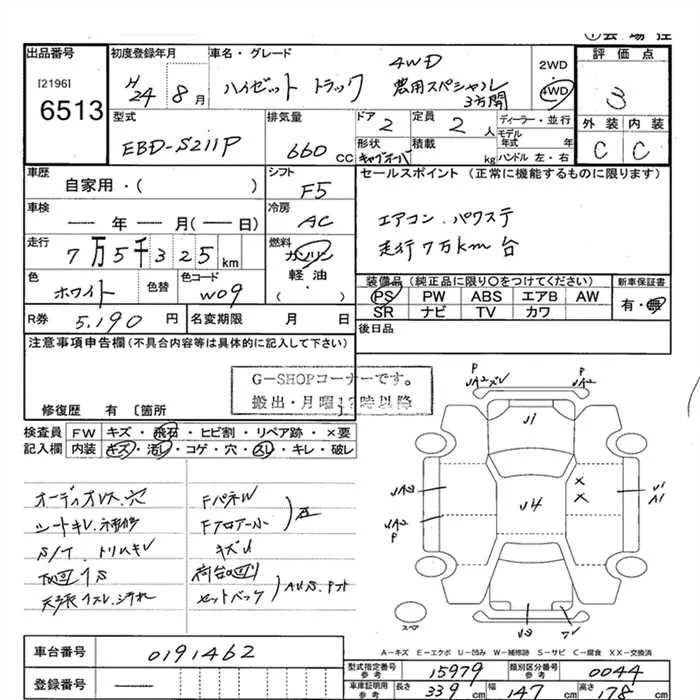 出品番号
[2196]
6513
初度登録年月
H24年 8月
車名・グレード
4WD
ハイゼット トラック 農用スペシャル
3方開
2WD
・
4WD
評価点
3
外装 内装
C C
型式
EBD-S211P
排気量
660 CC
ドア
2
定員
2人
形状
積載
kg
ディーラー・並行
モデル年式 年
ハンドル 左・右
車歴
自家用・( )
シフト
F5
セールスポイント (正常に機能するものに限ります)
エアコン. パワステ
走行7万km台
車検
― 年 ― 月(― 日)
冷房
AC
走行
7万5千325 km
燃料
ガソリン
軽油
( )
色
ホワイト
色替
色コード
W09
装備品 (純正品に限り〇をつけてください)
PS PW ABS エアB AW
SR ナビ TV カワ
新車保証書
有・無
R券 5,190 円
名変期限 月 日
後日品
注意事項申告欄 (不具合内容等は具体的に記入して下さい)
G-SHOPコーナーです。
修復歴 有 〔箇所
検査員
記入欄
FW キズ・飛石・ヒビ割・リペア跡・×要
内装 キズ・汚レ・コゲ・穴・スレ・キレ・破レ
オーディオレス.穴
シートキレ.補修
S/T.トリムキレ
天張スレ.汚れ
Fパネル
キズU
荷台廻り
P
UA2
P
UA2
U1
UA2
UA2
P
U4
×
×
U1
A1
U3
スペア
A-キズ E-エクボ U-凹み W-補修跡 S-サビ C-腐食 XX-交換済
車台番号
0191462
登録番号
型式指定番号
参考
15979
類別区分番号
参考
0044
車庫証明用
参考
長さ 339
幅 147
高さ 178 cm